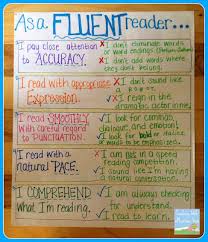 As a FLUENT reader...
I pay close attention
to ACCURACY.
X I don't eliminate words
or word endings
X I don't add words where
they don't belong.
I read with appropriate
Expression.
X I don't sound like
a robot.
X I reign in the
dramatic actor in me.
I read SMOOTHLY
with careful regard
to PUNCTUATION.
✓ I look for commas,
dialogue, and emotion.
✓ I look for bold or italics
I read with a
natural PACE.
X I am not in a speed
reading competition.
✓ I sound like I'm having
a natural conversation.
I COMPREHEND
what I'm reading.
✓ I am always checking
for understanding.
✓ I read to learn.